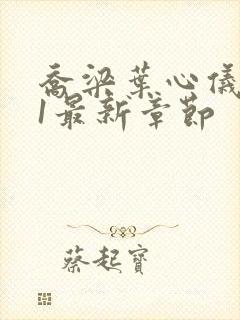 喬梁葉心儀
1最新章節
蔡起寶